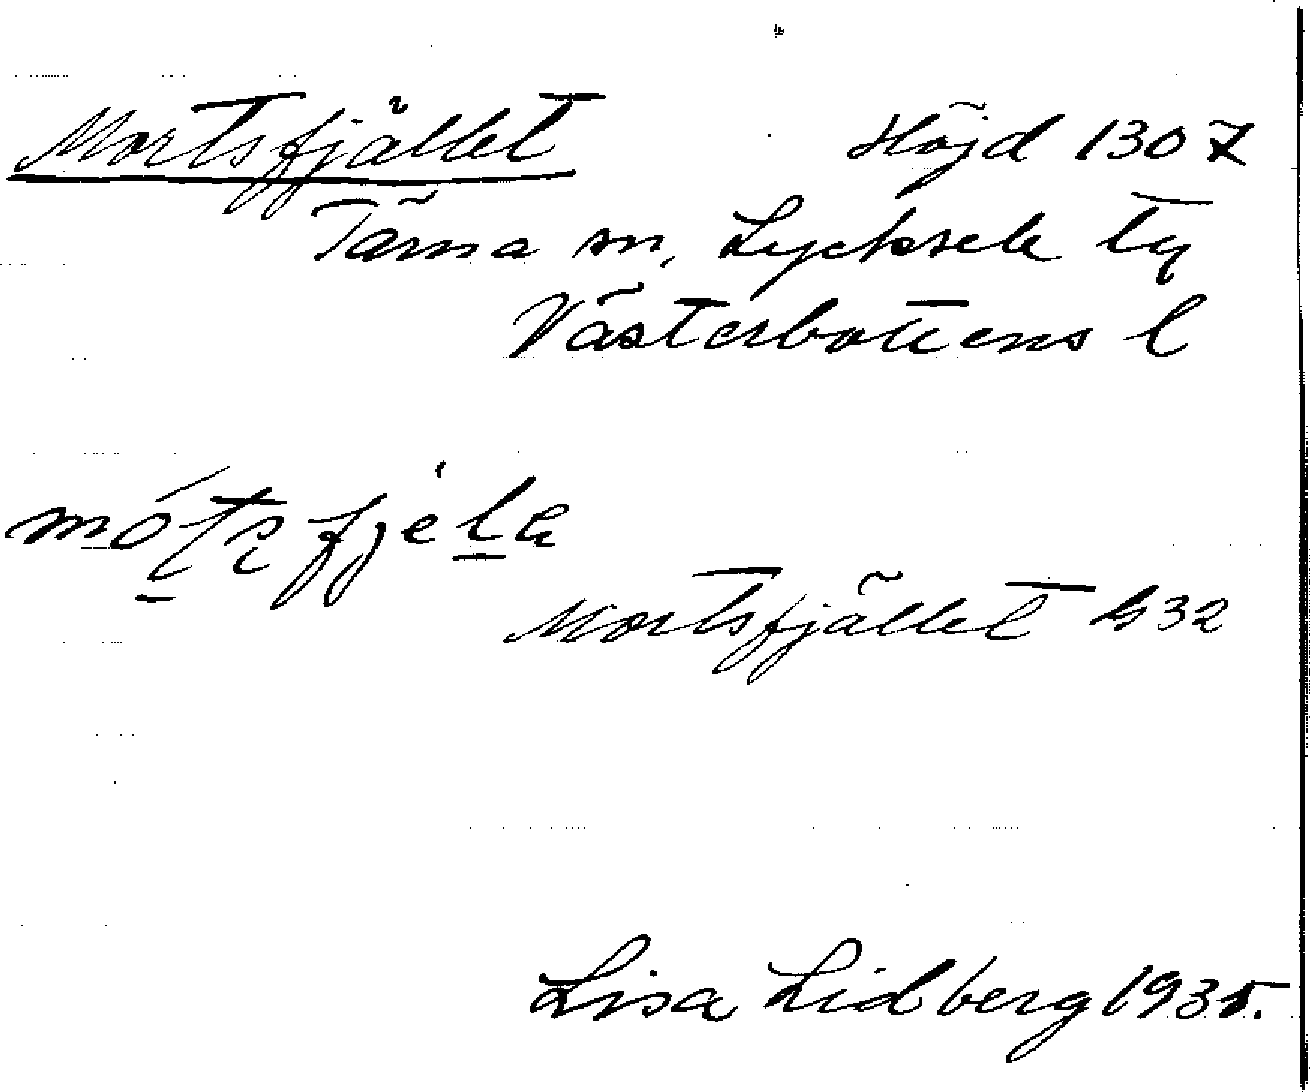 Mortsfjället Höjd 1307
Tärna sn, Lycksele tq
Västerbottens l
Mortsfjället G32
Lisa Lidberg 1935.